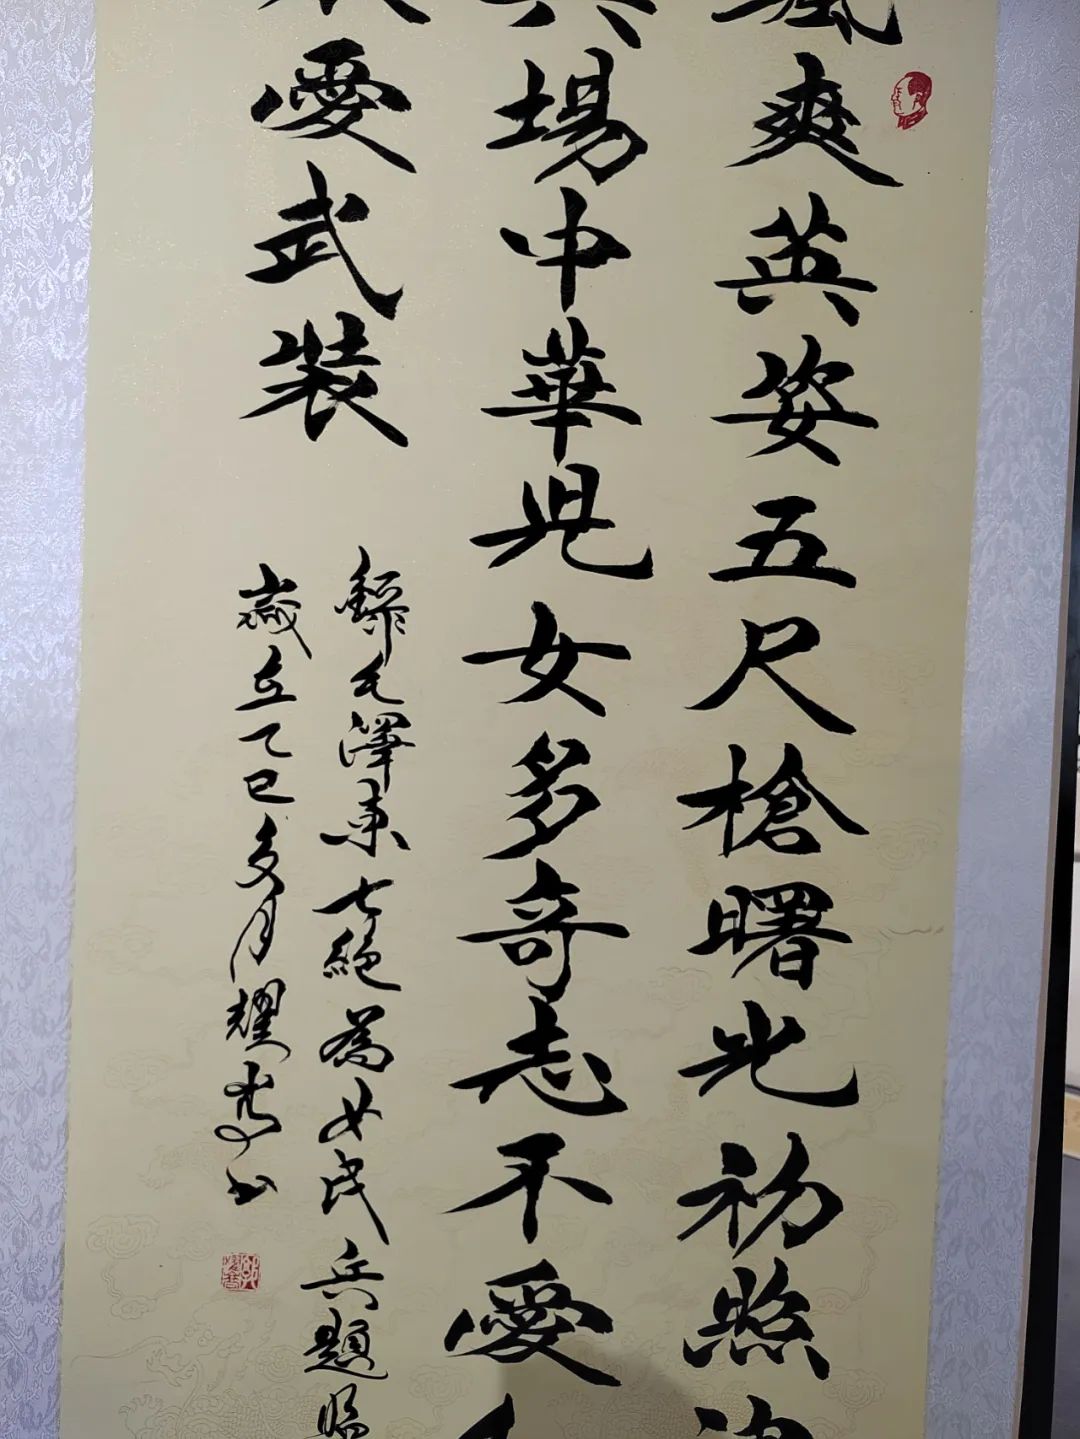 颯爽英姿五尺槍曙光初照演
兵場中華兒女多奇志不愛
愛武裝
錄毛澤東七絕為女民兵題照
歲在乙巳
月耀
書